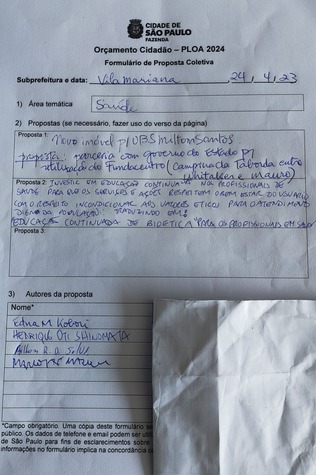 CIDADE DE
SÃO PAULO
FAZENDA
Orçamento Cidadão – PLOA 2024
Formulário de Proposta Coletiva
Subprefeitura e data: Vila Mariana, 24, 4, 23
1) Área temática Saúde
2) Propostas (se necessário, fazer uso do verso da página)
Proposta 1:
Novo imóvel p/ UBS Milton Santos
proposta: parceria com governo do Estado p/
utilização do Fundacentro (campinas da Taborda entre
Whitaker e Mauro)
Proposta 2: INVESTIR EM EDUCAÇÃO CONTINUADA NO PROFISSIONAIS DE
SAÚDE PARA QUE OS SERVIÇOS E AÇÕES RESPEITEM O USUÁRIO
COM O RESPEITO INCONDICIONAL AOS VALORES ÉTICOS PARA O ATENDIMENTO
DIGNO DA POPULAÇÃO: TRADUZINDO EM:
EDUCAÇÃO CONTINUADA DE BIOÉTICA "PARA OS PROFISSIONAIS EM SAÚDE
Proposta 3:
3) Autores da proposta
Nome*
Edna M Kobori
HENRIQUE OTI SHINOMATA
R. A. Silva
*Campo obrigatório. Uma cópia deste formulário se
público. Os dados de telefone e email poderão ser util
de São Paulo para fins de esclarecimentos sobre
informações no formulário implica na concordância c